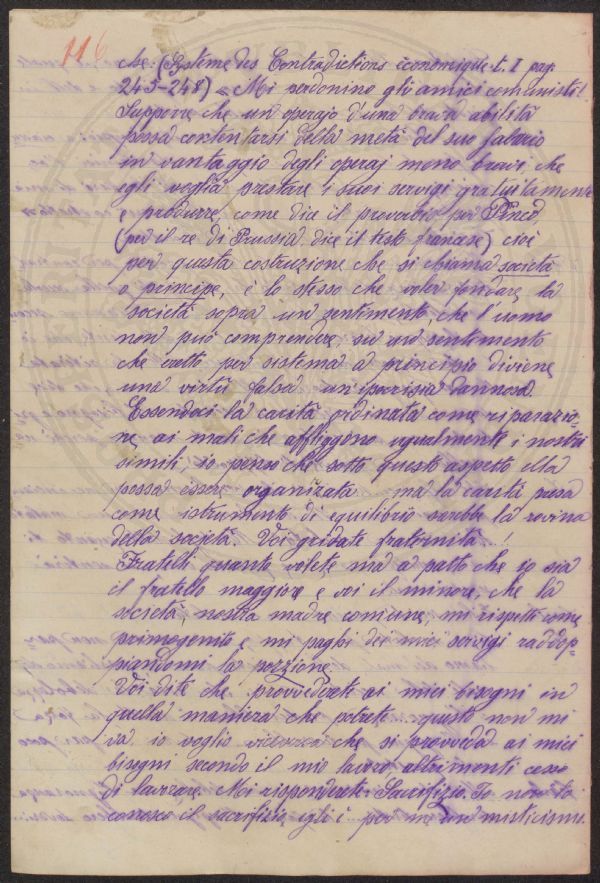 116
che: (Système des Contradictions économique. t. I pag.
245-248) « Mi perdonino gli amici comunisti!
Supporre che un operajo d'una brava abilità
possa contentarsi della metà del suo salario
in vantaggio degli operaj meno bravi, che
egli voglia prestare i suoi servigi gratuitamente
e produrre, come dice il proverbio per
(per il re di Prussia dice il testo francese) cioè
per questa costruzione che si chiama società
o principe, è lo stesso che voler fondare la
società sopra un sentimento che l'uomo
non può comprendere, su un sentimento
che eretto per sistema a principio diviene
una virtù falsa un'ipocrisia dannosa.
Essendoci la carità ordinata come riparazio-
ne ai mali che affliggono ugualmente i nostri
simili, io penso che sotto questo aspetto ella
possa essere organizata ma la carità presa
come istrumento di equilibrio sarebbe la rovina
della società. Voi gridate fraternità...!
Fratelli quanto volete ma a patto che io sia
il fratello maggiore e voi il minore, che la
società, nostra madre comune, mi rispetti come
primogenito e mi paghi dei miei servigi raddop-
piandomi la porzione.
Voi dite che provvederete ai miei bisogni in
quella maniera che potrete questo non mi
va io voglio che si provveda ai miei
bisogni secondo il mio lavoro, altrimenti cesso
di lavorare. Mi risponderete: Sacrifizio. Io non lo
conosco il sacrifizio, egli è per me un misticismo.